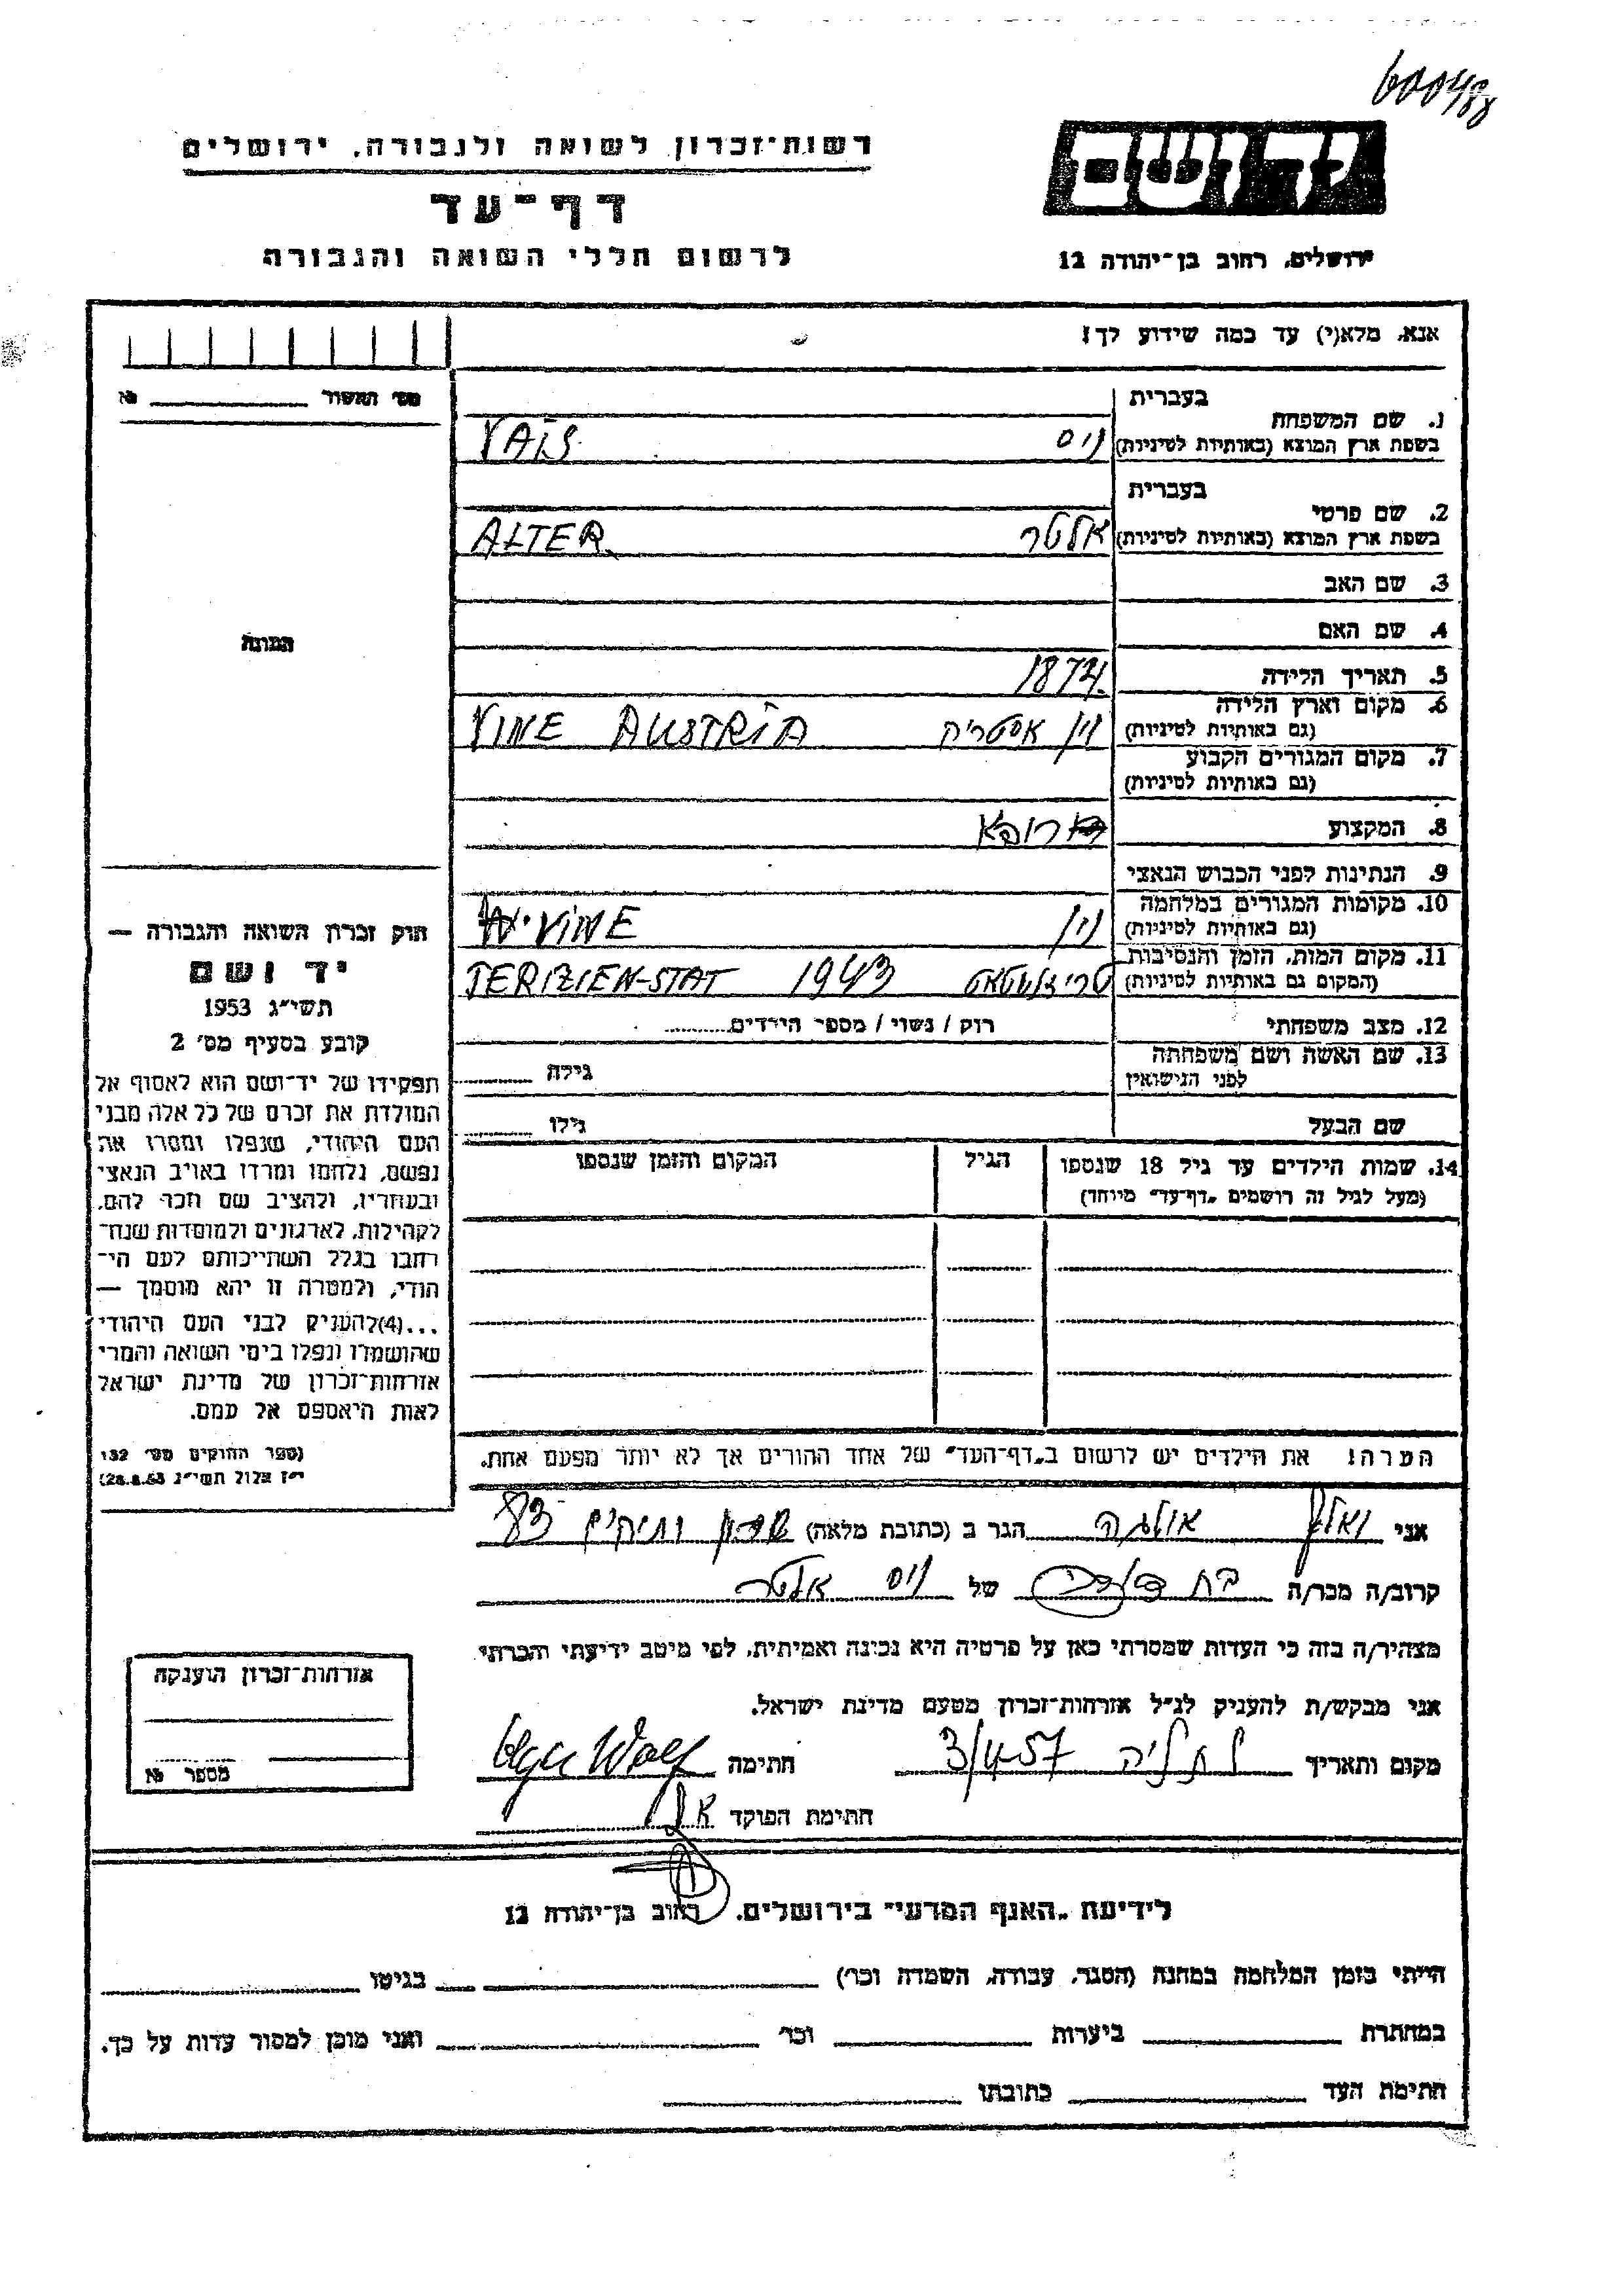 600488
רשות-זכרון לשואה ולגבורה, ירושלים
דף-עד
לרשום חללי השואה והגבורה
יד ושם
ירושלים, רחוב בן-יהודה 12
אנא, מלא(י) עד כמה שידוע לך!
מס' האשור №
בעברית
1. שם המשפחה
בשפת ארץ המוצא (באותיות לטיניות) ויס VAIS
בעברית
2. שם פרטי
בשפת ארץ המוצא (באותיות לטיניות) אלטר ALTER
3. שם האב
4. שם האם
תמונה
5. תאריך הלידה
6. מקום וארץ הלידה
(גם באותיות לטיניות) וין אסטריה VINE AUSTRIA
7. מקום המגורים הקבוע
(גם באותיות לטיניות)
8. המקצוע רופא
9. הנתינות לפני הכבוש הנאצי
10. מקומות המגורים במלחמה
(גם באותיות לטיניות) וין VINE
11. מקום המות, הזמן והנסיבות
(המקום גם באותיות לטיניות) 1943 TERIZIEN-STAT
12. מצב משפחתי רוק / נשוי / מספר הילדים
13. שם האשה ושם משפחתה
לפני הנישואין גילה
שם הבעל גילו
14. שמות הילדים עד גיל 18 שנספו הגיל המקום והזמן שנספו
(מעל לגיל זה רושמים "דף-עד" מיוחד)
חוק זכרון השואה והגבורה —
יד ושם
תשי"ג 1953
קובע בסעיף מס' 2
תפקידו של יד-ושם הוא לאסוף אל
המולדת את זכרם של כל אלה מבני
העם היהודי, שנפלו ומסרו את
נפשם, נלחמו ומרדו באויב הנאצי
ובעוזריו, ולהציב שם וזכר להם,
לקהילות, לארגונים ולמוסדות שנח-
רבו בגלל השתייכותם לעם הי-
הודי, ולמטרה זו יהא מוסמך —
...(4)להעניק לבני העם היהודי
שהושמדו ונפלו בימי השואה והמרי
אזרחות-זכרון של מדינת ישראל
לאות היאספם אל עמם.
(ספר החוקים מס' 132
י"ז אלול תשי"ג 28.8.53)
הערה! את הילדים יש לרשום ב"דף-העד" של אחד ההורים אך לא יותר מפעם אחת.
אני ואלף אולגה הגר ב (כתובת מלאה) שכון ותיקים 83
קרוב/ה מכר/ה של ויס אלטר
מצהיר/ה בזה כי העדות שמסרתי כאן על פרטיה היא נכונה ואמיתית, לפי מיטב ידיעתי והכרתי
אני מבקש/ת להעניק לנ"ל אזרחות-זכרון מטעם מדינת ישראל.
מקום ותאריך נתניה 3/4 57 חתימה Olga Wolf
חתימת הפוקד
אזרחות-זכרון הוענקה
מספר №
לידיעת "האגף המדעי" בירושלים, רחוב בן-יהודה 12
הייתי בזמן המלחמה במחנה (הסגר, עבודה, השמדה וכו') בגיטו
במחתרת ביערות וכו' ואני מוכן למסור עדות על כך.
חתימת העד כתובתו